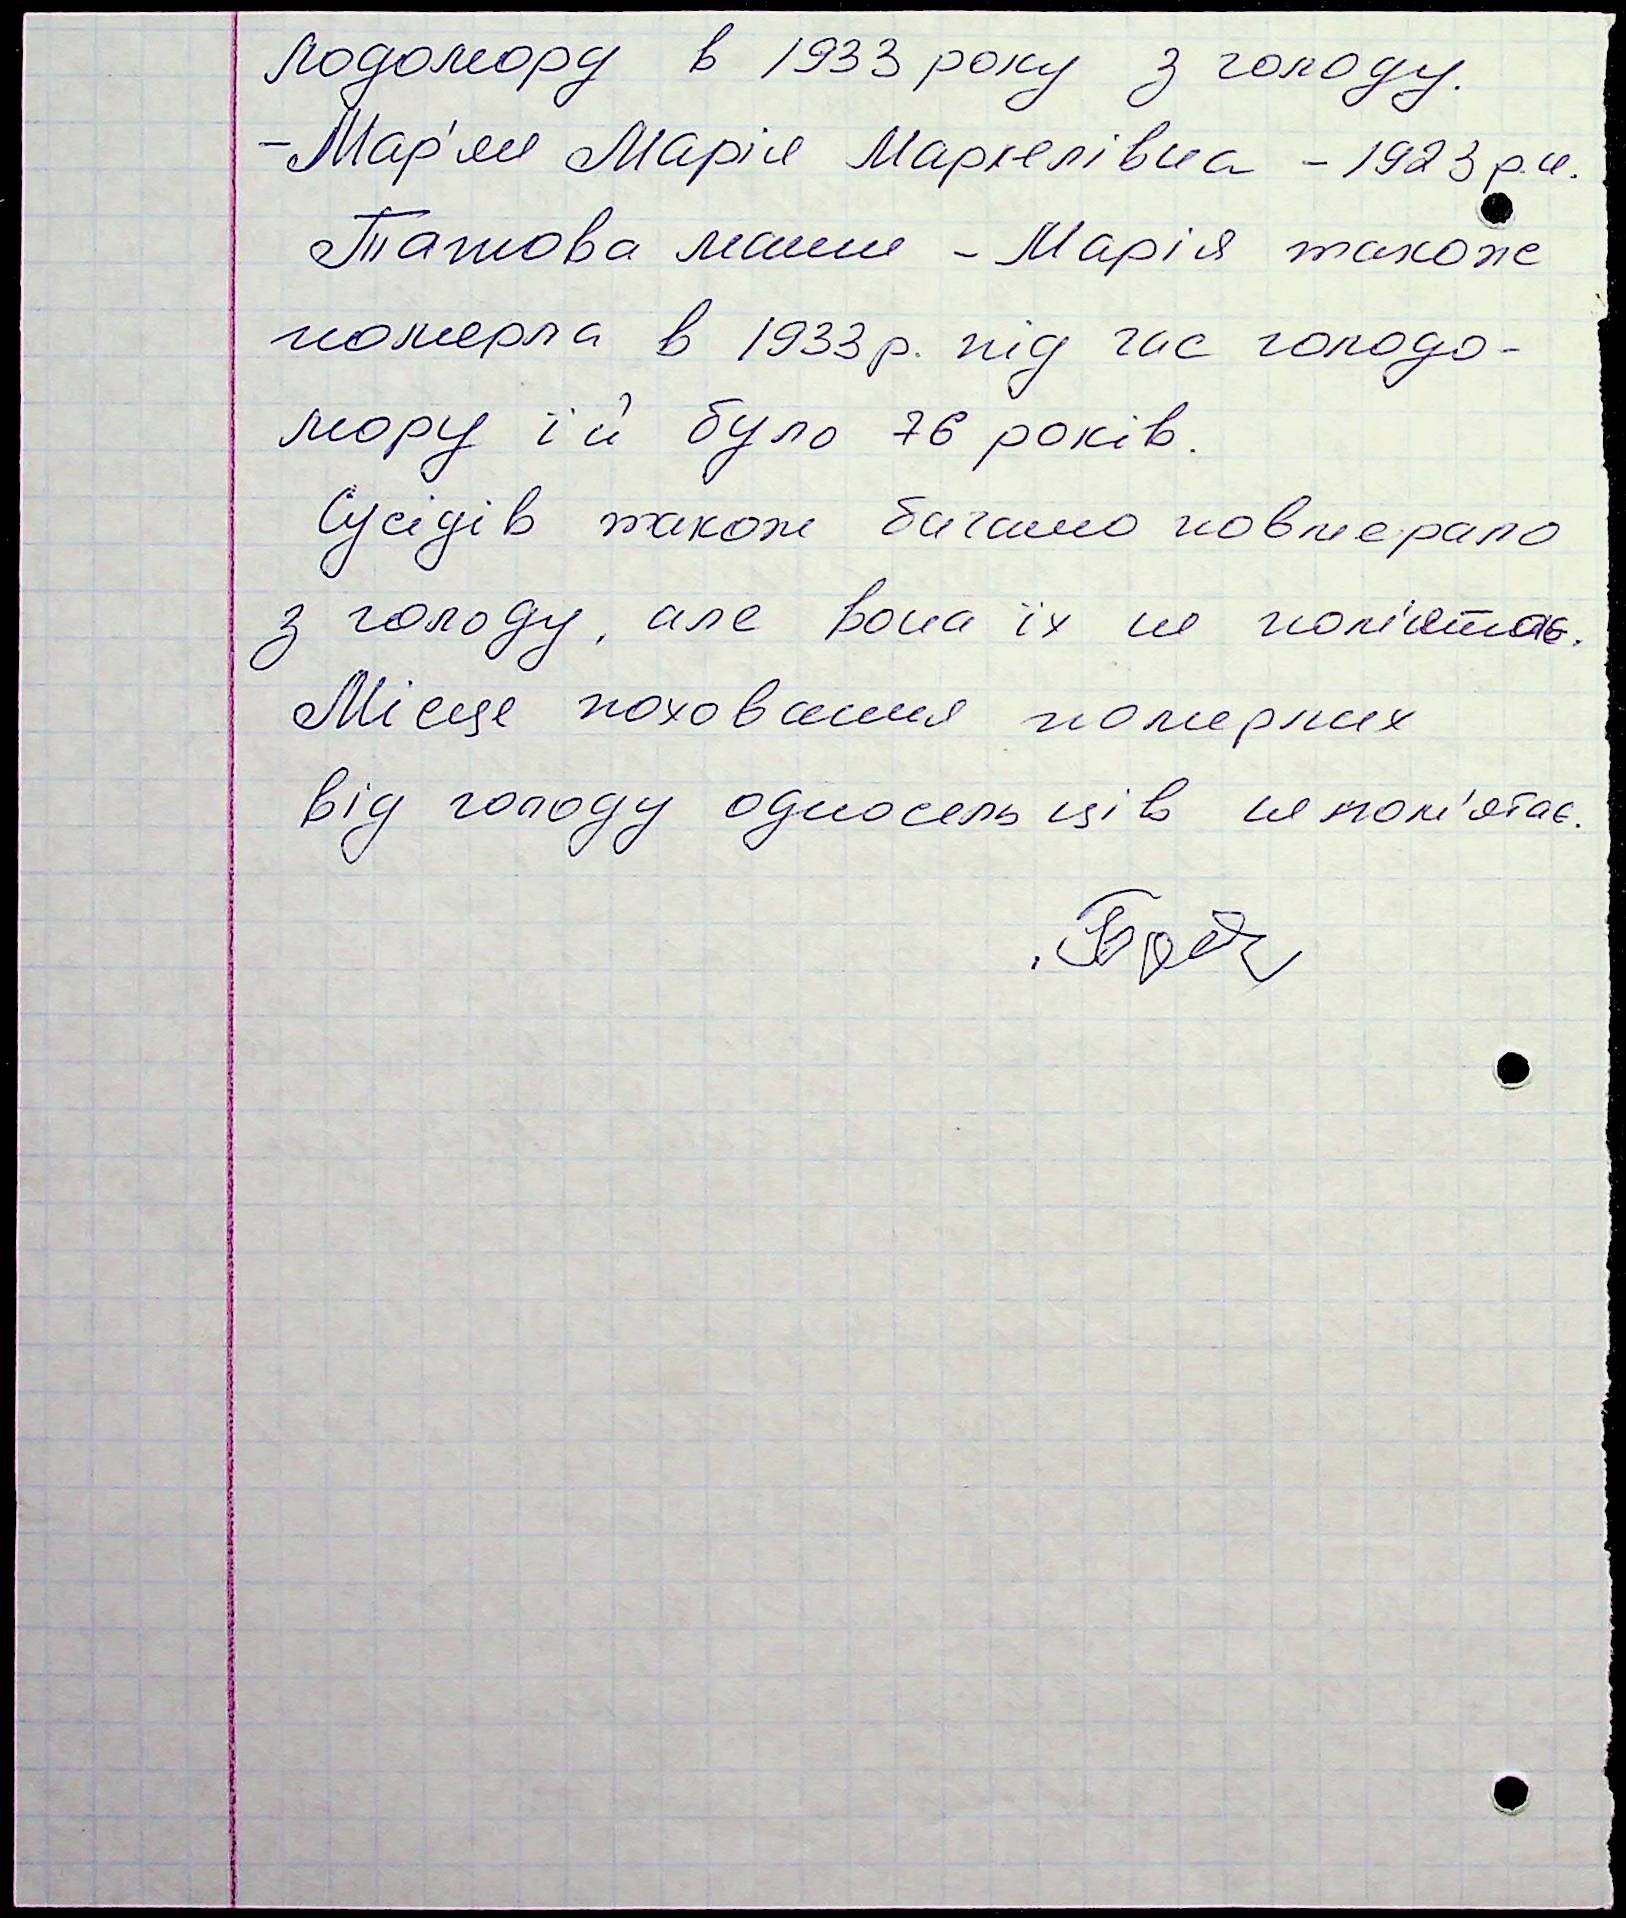 лодомору в 1933 року з голоду.
- Мар'ян Марія Маркелівна - 1923 р.н.
Татова мати - Марія також
померла в 1933 р. під час голодо-
мору їй було 76 років.
Сусідів також багато повмерало
з голоду, але вона їх не пом'ятає.
Місце поховання померлих
від голоду односельців не пом'ятає.